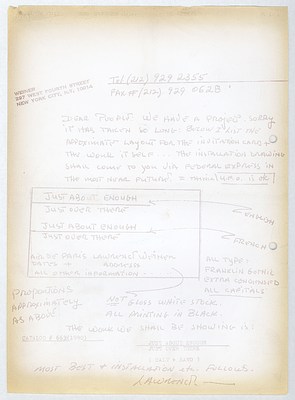 WEINER
297 WEST FOURTH STREET
NEW YORK CITY, N.Y. 10014
Tel (212) 929 2355
FAX # (212) 929 0628
WE HAVE A PROJECT. SORRY
IT HAS TAKEN SO LONG. BELOW IS THE
APPROXIMATE LAYOUT FOR THE INVITATION CARD
THE WORK ITSELF... THE INSTALLATION DRAWING
SHALL COME TO YOU VIA FEDERAL EXPRESS IN
THE MOST NEAR FUTURE
JUST ABOUT ENOUGH
JUST OVER THERE
ENGLISH
JUST ABOUT ENOUGH
JUST OVER THERE
FRENCH
PARIS LAWRENCE WEINER
DATES ADDRESS
ALL OTHER INFORMATION
ALL TYPE:
FRANKLIN GOTHIC
EXTRA CONDENSED
ALL CAPITALS
PROPORTIONS
APPROXIMATELY
AS ABOVE
NOT GLOSS WHITE STOCK
ALL PRINTING IN BLACK
THE WORK WE SHALL BE SHOWING IS:
MOST BEST & INSTALLATION etc. FOLLOWS.
LAWRENCE